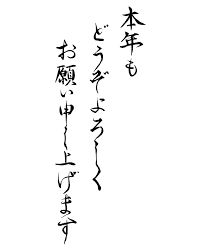 本年も
どうぞよろしく
お願い申し上げます